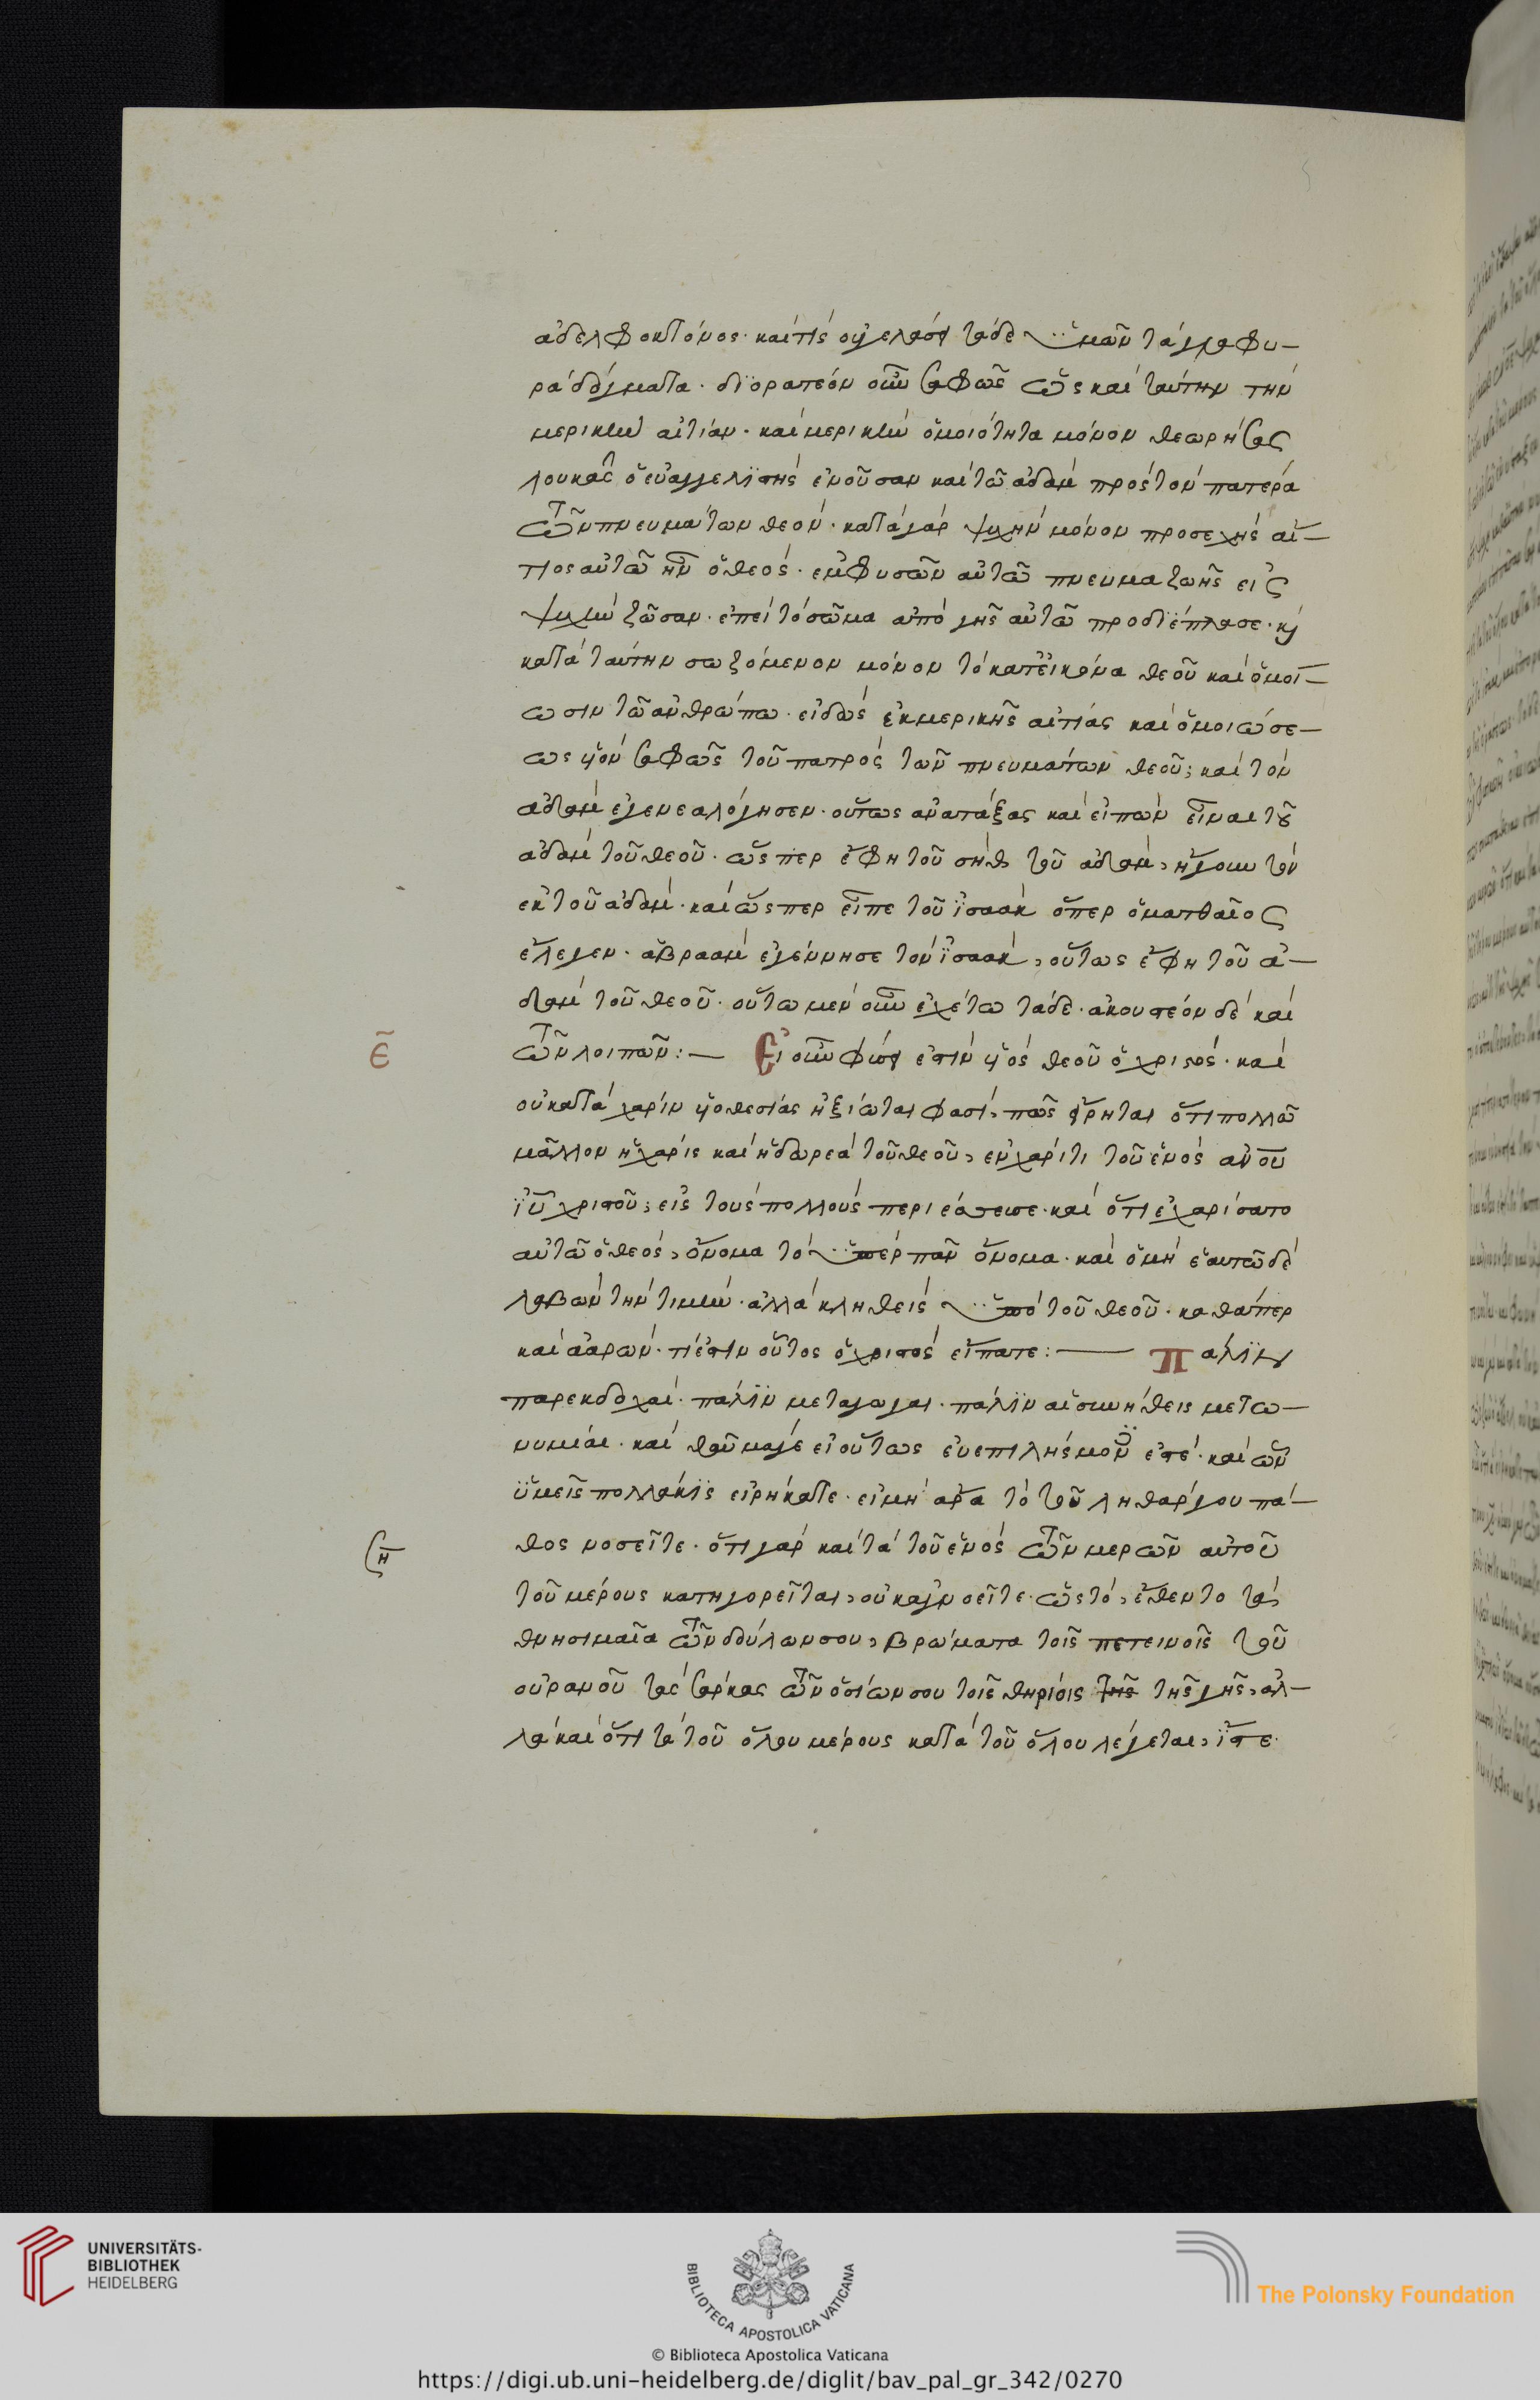 ἀδελφοκτόνος· καὶ τίς οὐ γελάσει τάδε ὑμῶν τὰ γλαφυ-
ρὰ δόγματα· διορατέον οὖν σαφῶς ὡς καὶ ταύτην τὴν
μερικὴν αἰτίαν· καὶ μερικὴν ὁμοιότητα μόνον θεωρήσας
λουκᾶς ὁ εὐαγγελιστής ἐνοῦσαν καὶ τῶ ἀδὰμ πρὸς τὸν πατέρα
τῶν πνευμάτων θεόν· κατὰ γὰρ ψυχὴν μόνον προσεχὴς αἴ-
τιος αὐτῶ ἦν ὁ θεός· ἐμφυσῶν αὐτῶ πνεῦμα ζωῆς εἰς
ψυχὴν ζῶσαν· ἐπεὶ τὸ σῶμα ἀπὸ γῆς αὐτῶ προδιέπλασε· κ
κατὰ ταύτην σωζόμενον μόνον τὸ κατ' εἰκόνα θεοῦ καὶ ὁμοί-
ωσιν τῶ ἀνθρώπω· εἰδὼς ἐκ μερικῆς αἰτίας καὶ ὁμοιώσε-
ως υἱὸν σαφῶς τοῦ πατρὸς τῶν πνευμάτων θεοῦ; καὶ τὸν
ἀδὰμ ἐγενεαλόγησεν· οὕτως ἀνατάξας καὶ εἰπὼν εἶναι τοῦ
ἀδὰμ τοῦ θεοῦ· ὥσπερ ἔφη τοῦ σὴθ τοῦ ἀδὰμ, ἤγουν τὸν
ἐκ τοῦ ἀδάμ· καὶ ὥσπερ εἶπε τοῦ ἰσαάκ ὅπερ ὁ ματθαῖος
ἔλεγεν· ἀβραὰμ ἐγέννησε τὸν ἰσαάκ, οὕτως ἔφη τοῦ ἀ-
δὰμ τοῦ θεοῦ· οὕτω μὲν οὖν ἐχέτω τάδε· ἀκουστέον δὲ καὶ
τῶν λοιπῶν:—
ε̄ Εἰ οὖν φύσει ἐστὶν υἱὸς θεοῦ ὁ χριστός· καὶ
οὐ κατὰ χάριν υἱοθεσίας ἠξίωται φασὶ, πῶς εἴρηται ὅτι πολλῶ
μᾶλλον ἡ χάρις καὶ ἡ δωρεὰ τοῦ θεοῦ, ἐν χάριτι τοῦ ἑνὸς ἀν̄ου
ἰῡ χριστοῦ; εἰς τοὺς πολλοὺς περιέσσευσε· καὶ ὅτι ἐχαρίσατο
αὐτῶ ὁ θεός, ὄνομα τὸ ὑπὲρ πᾶν ὄνομα· καὶ ὁ μὴ ἑαυτῶ δὲ
λαβὼν τὴν τιμήν· ἀλλὰ κληθεὶς ὑπὸ τοῦ θεοῦ· καθάπερ
καὶ ἀαρών· τί ἐστιν οὗτος ὁ χριστὸς εἴπατε:— Πάλιν
παρεκδοχαί· πάλιν μεταγωγαι· πάλιν αἱ συνήθεις μετω-
νυμίαι· καὶ θαυμάζω εἰ οὕτως ἐνεπιλήσμονοι ἐστέ· καὶ ὧν
ὑμεῖς πολλάκις εἰρήκατε· εἰ μὴ ἄρα τὸ τοῦ ληθάργου πά-
ση̄ θος νοσεῖτε· ὅτι γὰρ καὶ τὰ τοῦ ἑνὸς τῶν μερῶν αὐτοῦ
τοῦ μέρους κατηγορεῖται, οὐκ ἀγνοεῖτε· ὡς τὸ, ἔθεντο τὰ
θνησιμαῖα τῶν δούλων σου, βρώματα τοῖς πετεινοῖς τοῦ
οὐρανοῦ τὰς σάρκας τῶν ὁσίων σου τοῖς θηρίοις τῆς γῆς, ἀλ-
λὰ καὶ ὅτι τὰ τοῦ ὅλου μέρους κατὰ τοῦ ὅλου λέγεται, ἴστε·
UNIVERSITÄTS-
BIBLIOTHEK
HEIDELBERG
BIBLIOTECA APOSTOLICA VATICANA
The Polonsky Foundation
© Biblioteca Apostolica Vaticana
https://digi.ub.uni-heidelberg.de/diglit/bav_pal_gr_342/0270